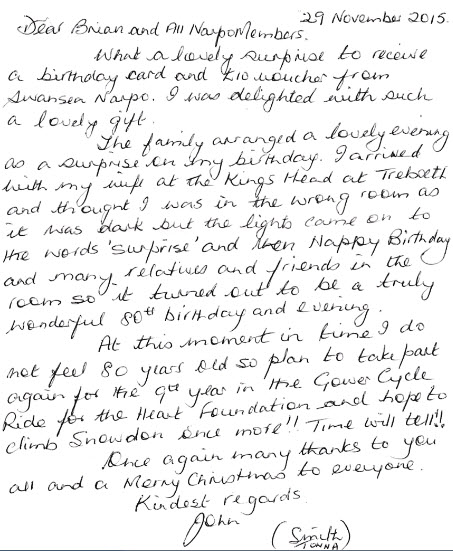 29 November 2015.
Dear Brian and All Narpo Members.
What a lovely surprise to receive
a birthday card and £10 voucher from
Swansea Narpo. I was delighted with such
a lovely gift.
The family arranged a lovely evening
as a surprise on my birthday. I arrived
with my wife at the Kings Head at Treboeth
and thought I was in the wrong room as
it was dark but the lights came on to
the words 'surprise' and then Happy Birthday
and many relatives and friends in the
room so it turned out to be a truly
wonderful 80th birthday and evening.
At this moment in time I do
not feel 80 years old so plan to take part
again for the 9th year in the Gower Cycle
Ride for the Heart Foundation and hope to
climb Snowdon once more!! Time will tell!!
Once again many thanks to you
all and a Merry Christmas to everyone.
Kindest regards
John
(Smith)
TONNA